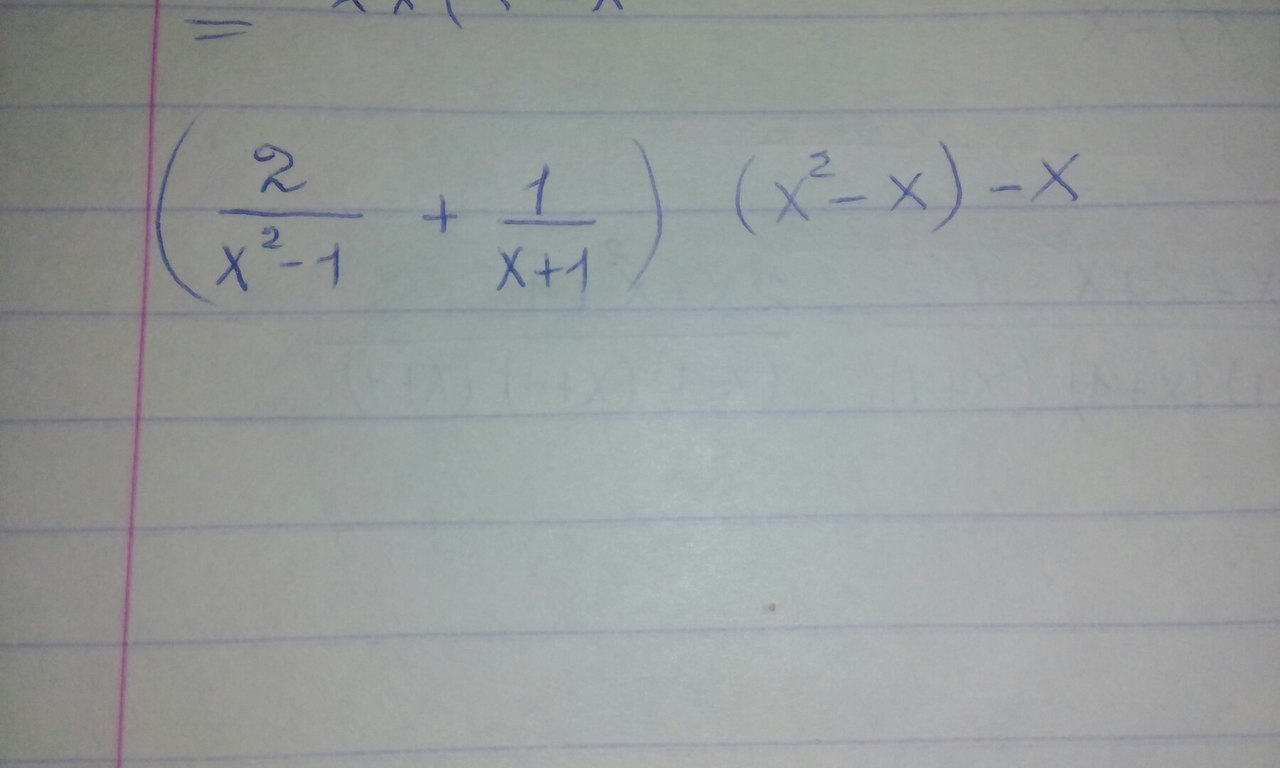 =
(2/(x²-1) + 1/(x+1)) (x²-x)-x